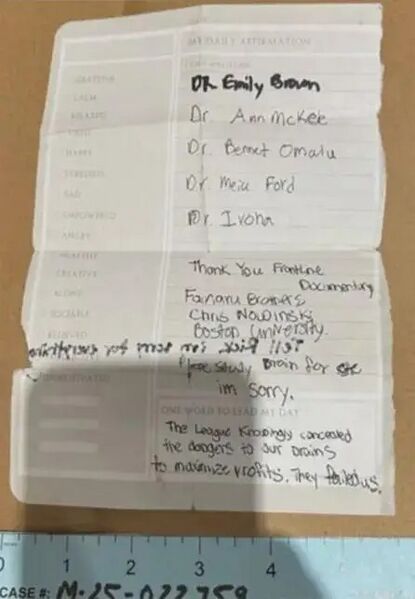 MY DAILY AFFIRMATION
GRATEFUL
DR. Emily Brown
CALM
RELAXED
Dr. Ann McKee
HAPPY
Dr. Bennet Omalu
STRESSED
SAD
Dr. Meiu Ford
EMPOWERED
Dr. Ivohn
ANGRY
HEALTHY
Thank You Frontline
CREATIVE
Documentary
ALONE
Fainaru Brothers
SOCIABLE
Chris Nowinski
Boston University.
RELIEVED
Tell Rick I'm sorry for everything
Please study Brain for
im sorry.
ONE WORD TO LEAD MY DAY
The League knowingly concealed
the dangers to our brains
to maximize profits. They failed us.
0 1 2 3 4
CASE #: M-25-022759